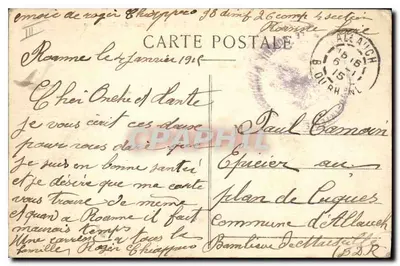 envoie de roger Chiappero 98 dinf 26 comp 4 section
Roanne
III
CARTE POSTALE
ALLAUCH
B. DU RHÔNE
Roanne le 4 janvier 1915
Cher Oncle et Tante
je vous écrit ces deux
pour vous dire que
je suis en bonne santé
et je désire que ma carte
vous trouve de meme
et quan a Roanne il fait
mauvais temps
Une caresse a tous la
famille Roger Chiappero
Paul Camoin
Epicier au
plan de Cuques
Commune d'Allauch
Banlieue de Marseille
(B.D.R